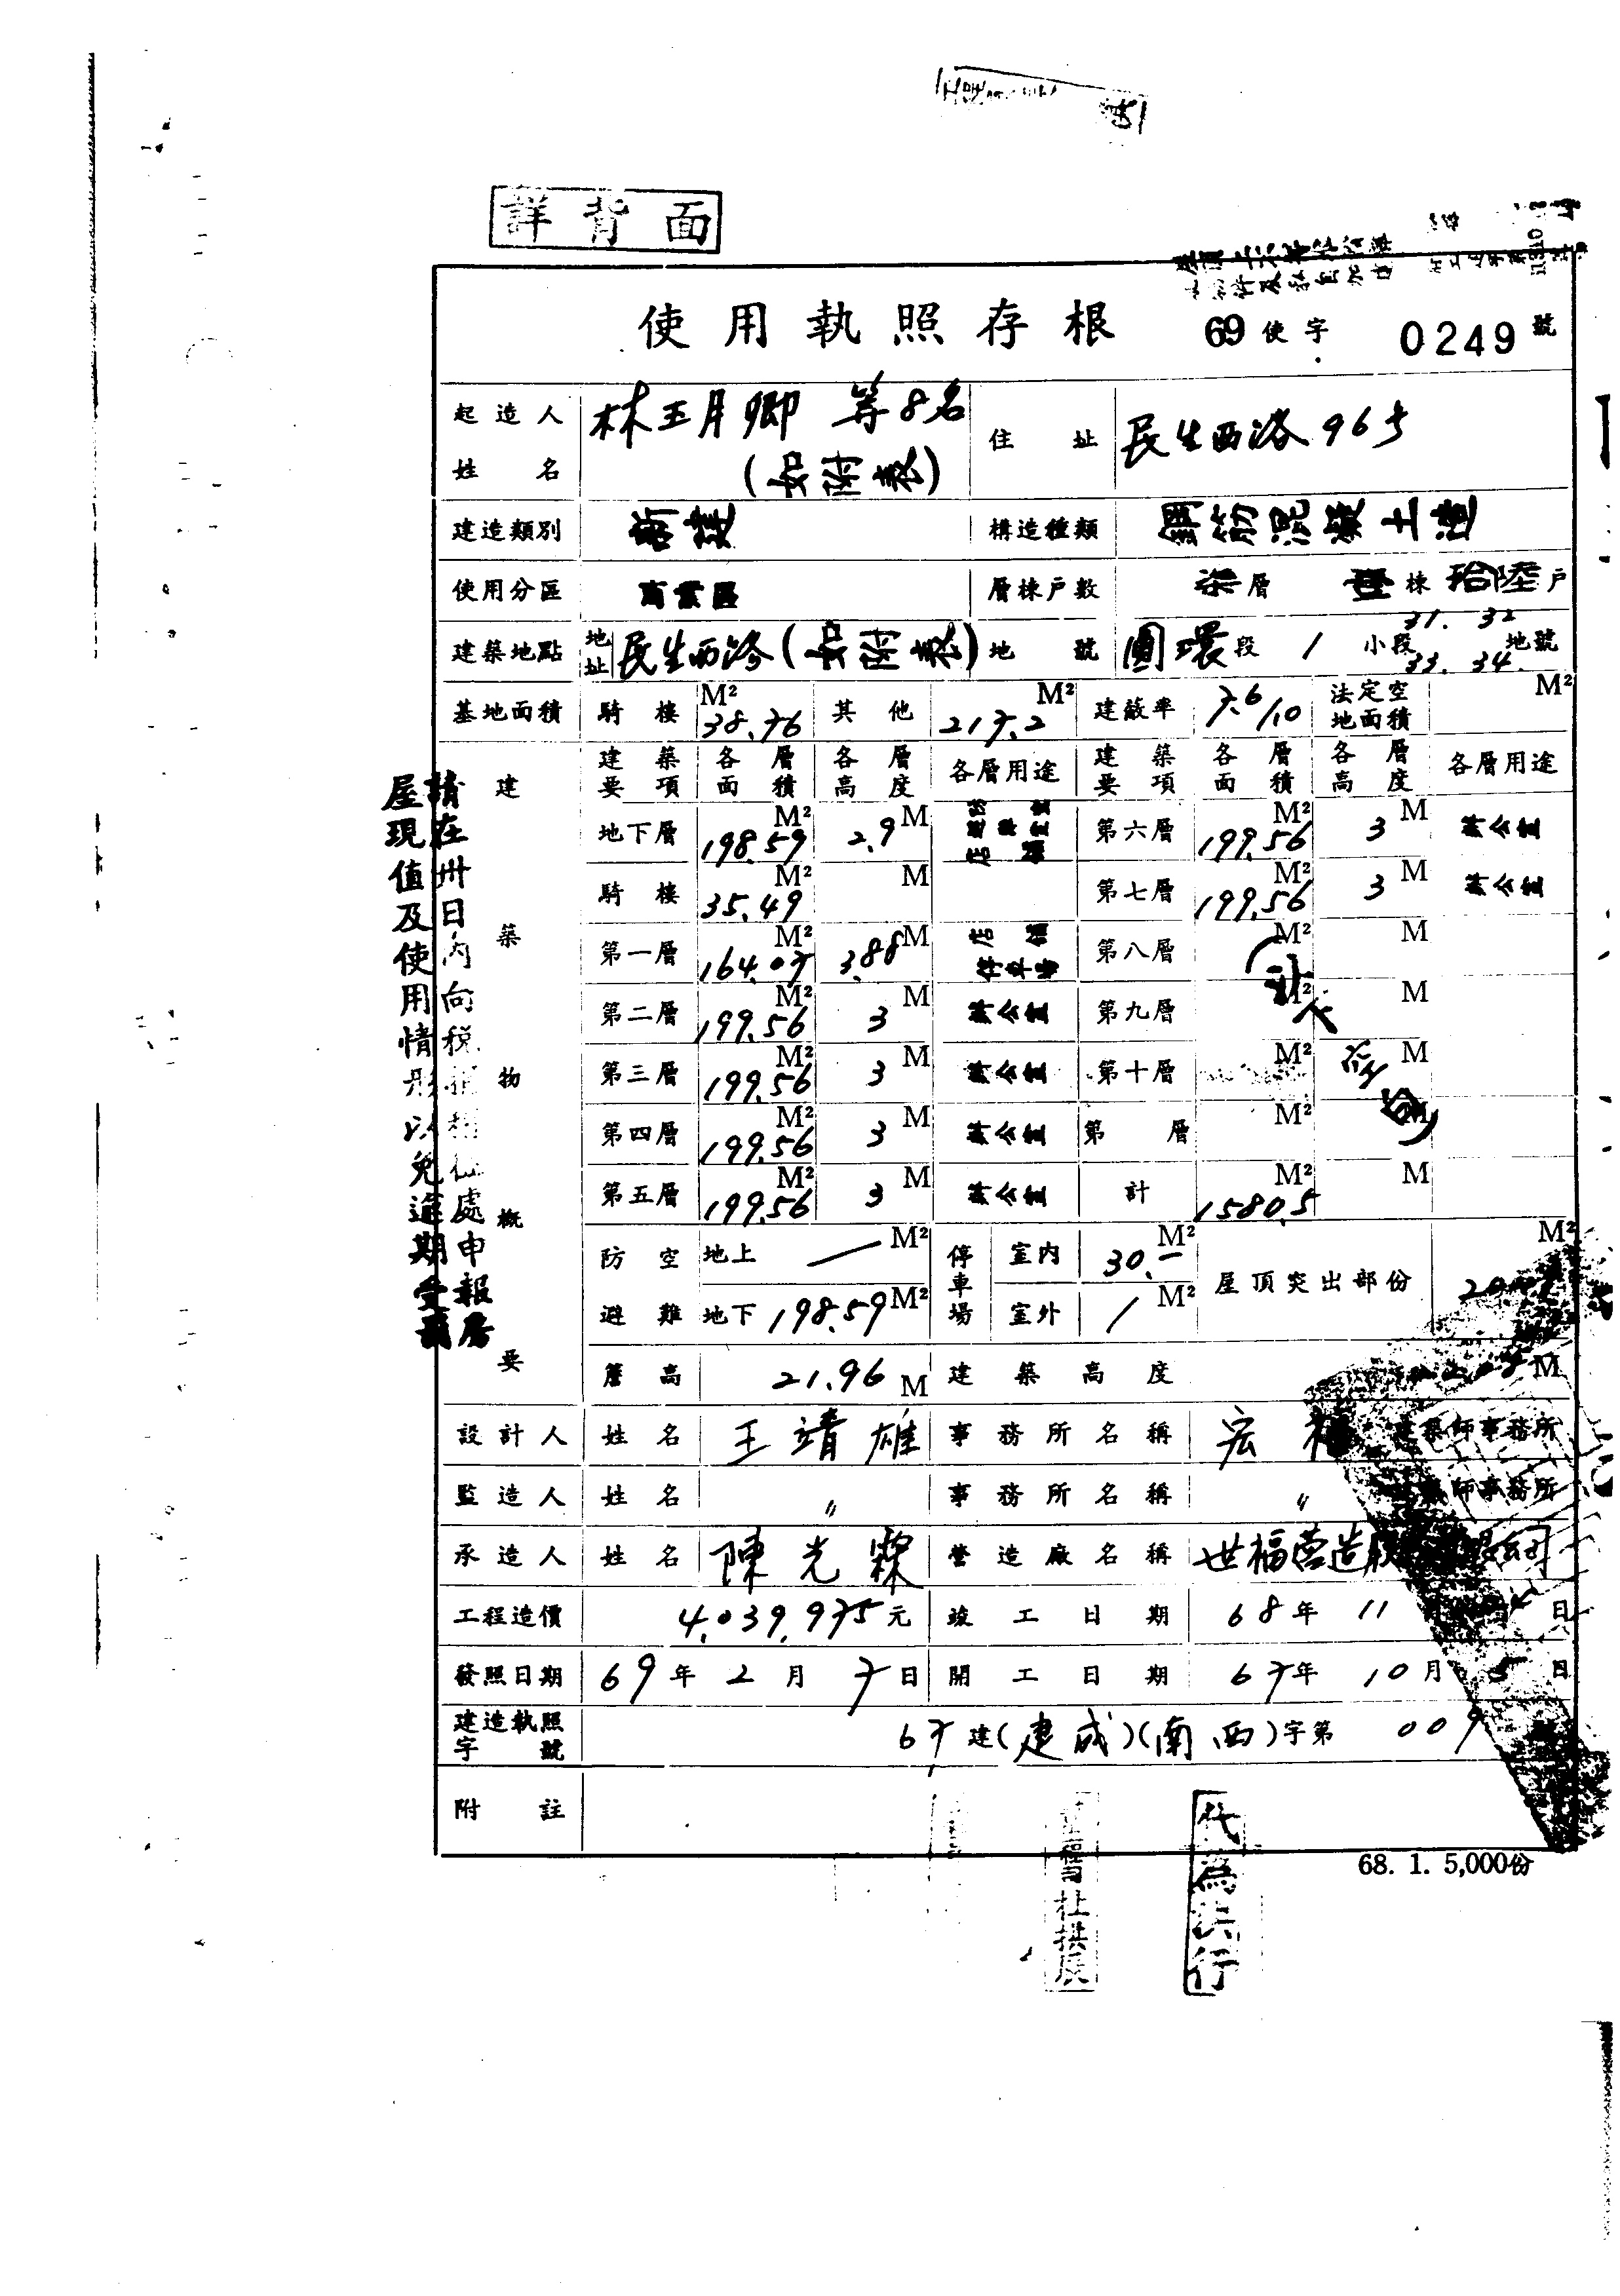 詳背面
使用執照存根 69使字 0249號
起造人姓名 林王月卿 等8名(如附表) 住址 民生西路96号
建造類別 新建 構造種類 鋼筋混凝土造
使用分區 商業區 層棟戶數 柒層 壹棟 拾陸戶
建築地點 地址 民生西路(如附表) 地號 圓環段 1 小段 31. 32 33. 34. 地號
基地面積 騎樓 M² 38.76 其他 M² 217.2 建蔽率 7.6/10 法定空地面積 M²
建築物概要
建築要項 各層面積 各層高度 各層用途 建築要項 各層面積 各層高度 各層用途
地下層 198.59 M² 2.9 M 第六層 199.56 M² 3 M 辦公室
騎樓 35.49 M² M 第七層 199.56 M² 3 M 辦公室
第一層 164.07 M² 3.88 M 店舖 停車場 第八層 M² M
第二層 199.56 M² 3 M 辦公室 第九層 M² M
第三層 199.56 M² 3 M 辦公室 第十層 M² M
第四層 199.56 M² 3 M 辦公室 第 層 M² M
第五層 199.56 M² 3 M 辦公室 計 1580.5 M² M
(以下空白)
防空避難 地上 — M² 地下 198.59 M² 停車場 室內 30.— M² 室外 / M² 屋頂突出部份 M²
簷高 21.96 M 建築高度 M
設計人 姓名 王靖雄 事務所名稱 宏 建築師事務所
監造人 姓名 〃 事務所名稱 〃 建築師事務所
承造人 姓名 陳光霖 營造廠名稱 世福營造 公司
工程造價 4,039,975元 竣工日期 68年 11 日
發照日期 69年2月7日 開工日期 67年10月5日
建造執照字號 67建(建成)(南西)字第 009
附註
68. 1. 5,000份
請在卅日內向稅捐稽徵處申報房
屋現值及使用情形以免逾期受罰
杜拱辰
代為決行